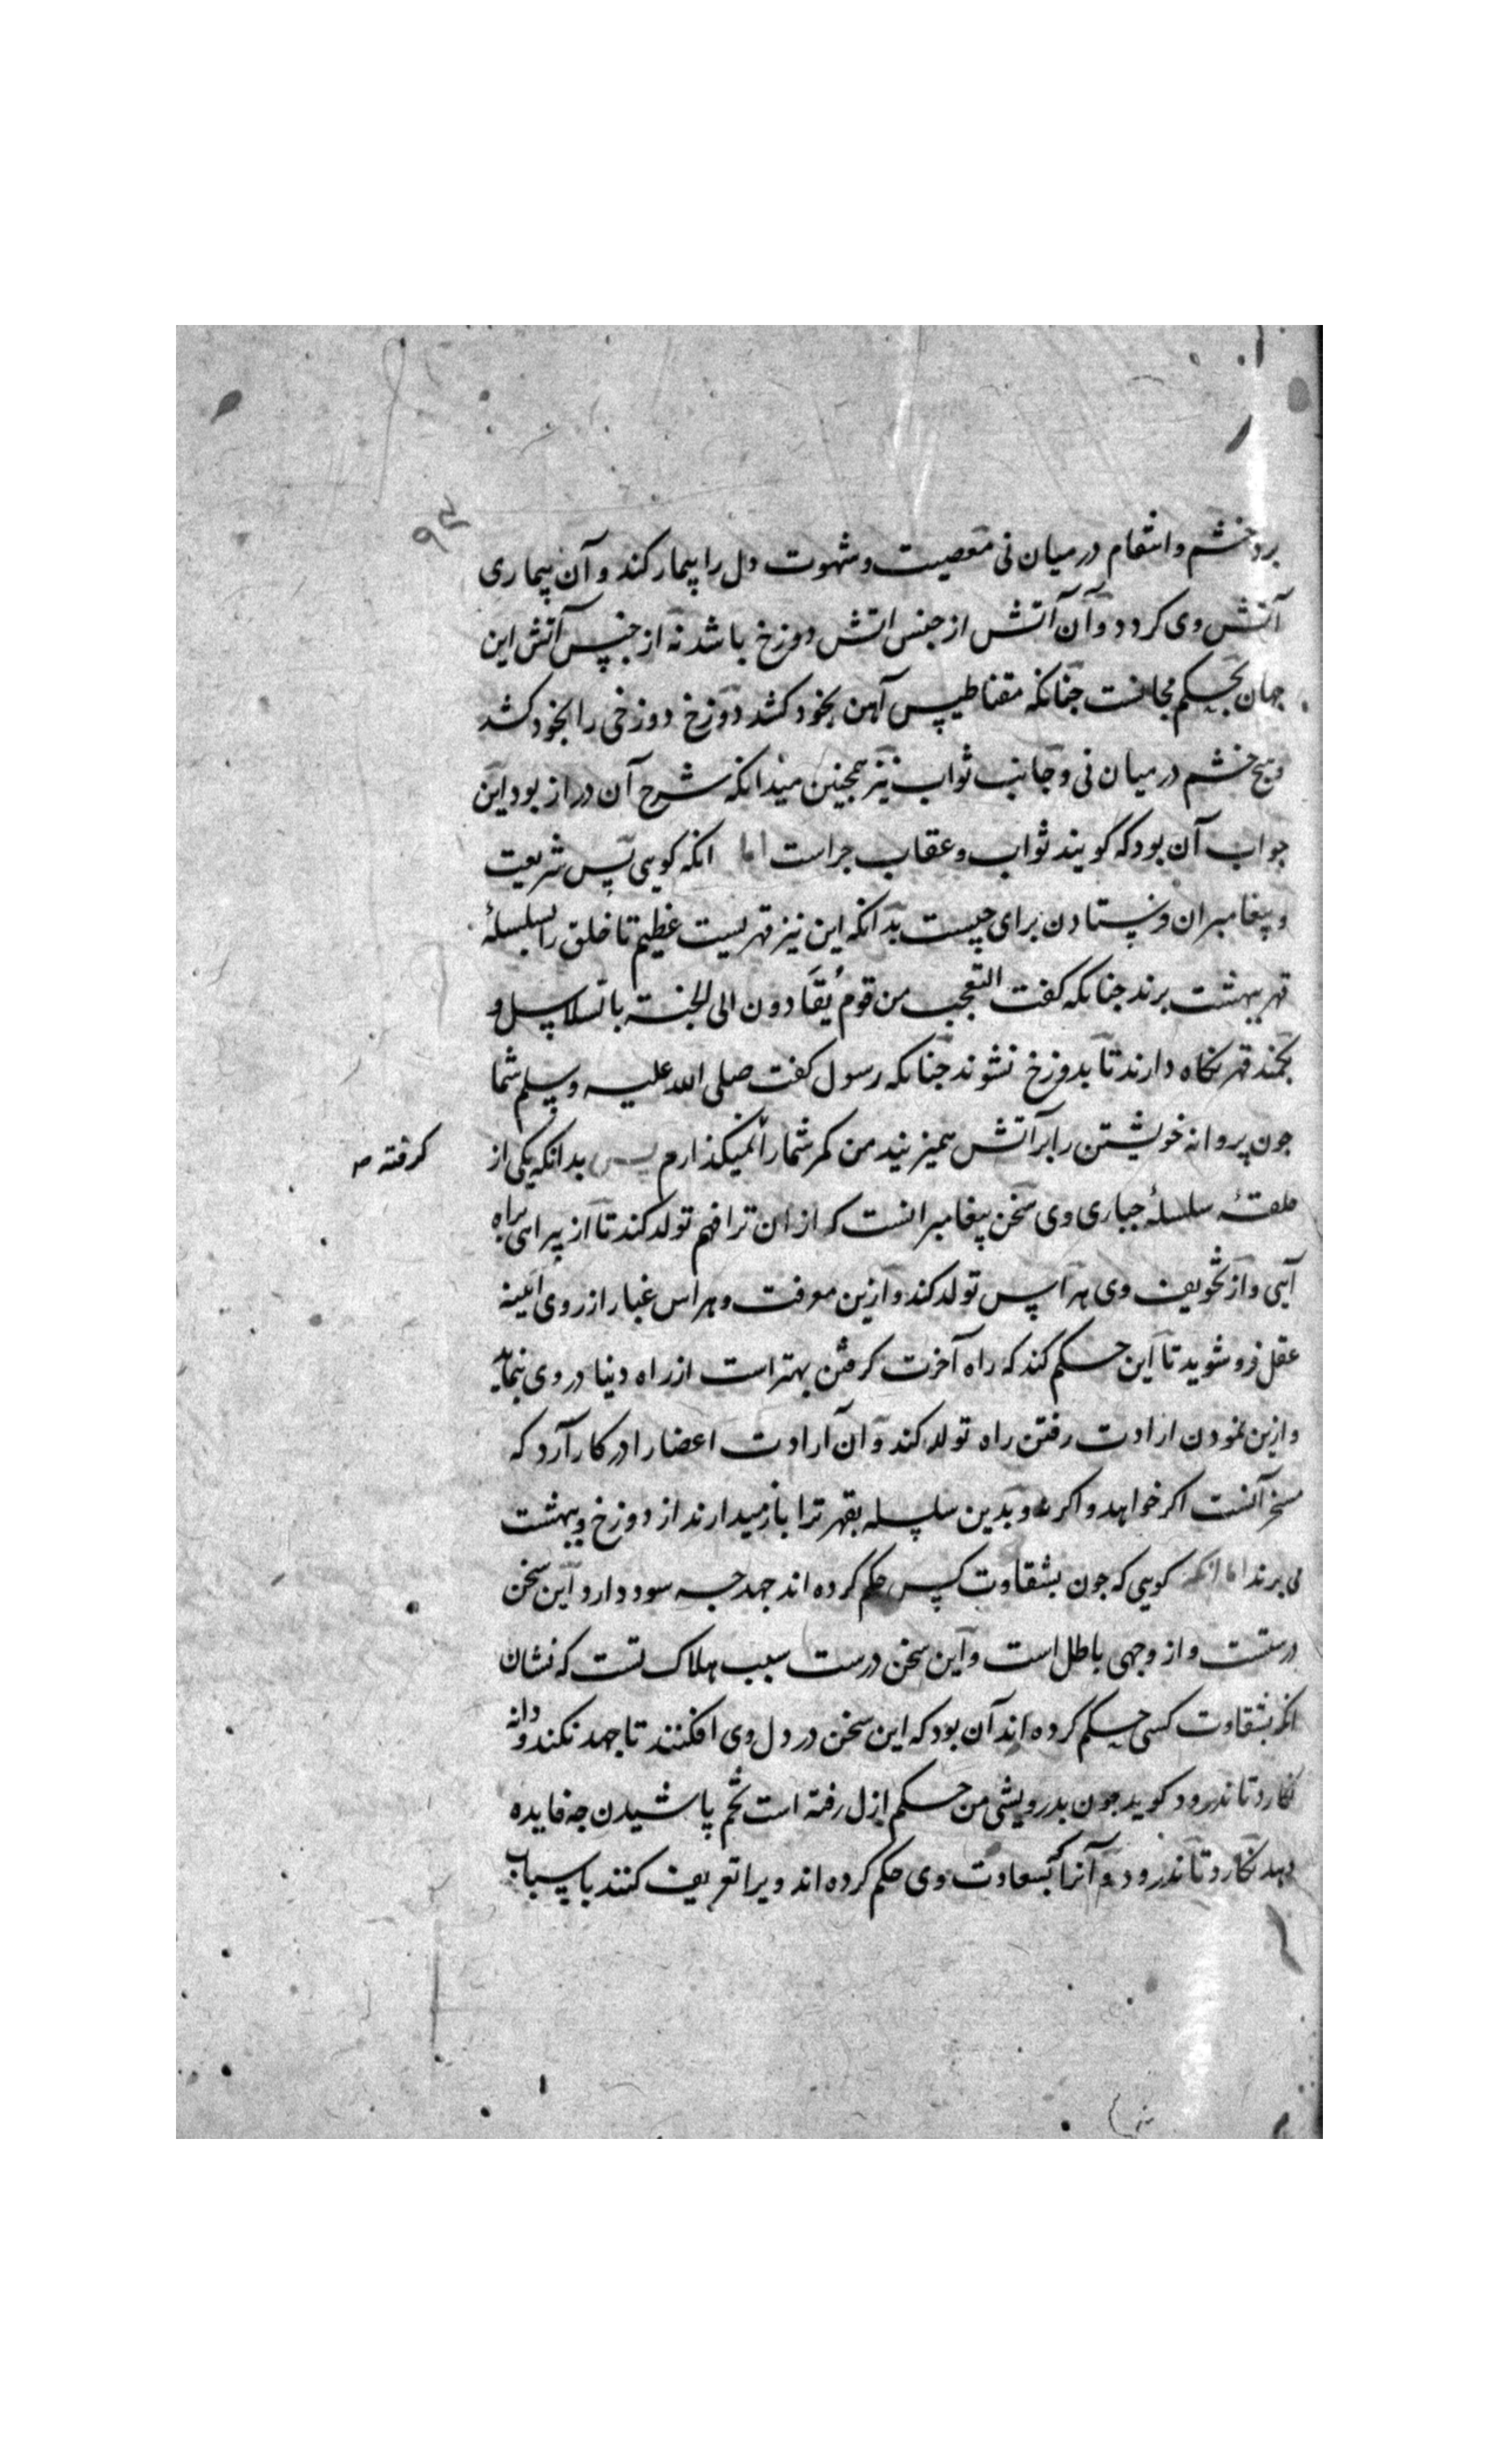 برد خشم و انتقام در میان نی معصیت و شهوت دل را بیمار کند و آن بیماری
آتش وی کردد و آن آتش از جنس اتش دوزخ باشد نه از جنس آتش این
جهان بحکم مجانست جنانکه مقناطیس آهن بخود کشد دوزخ دوزخی را بخود کشد
و هیچ خشم در میان نی و جانب ثواب نیز همجنین میدانکه شرح آن دراز بود این
جواب آن بود که کویند ثواب و عقاب جراست اما انکه کویی پس شریعت
و پیغامبران فرستادن برای چیست بدانکه این نیز قهریست عظیم تا خلق را بسلسلهٔ
قهر ببهشت برند جنانکه کفت التعجب من قوم یُقَادون الی الجنة بالسلاسل و
بکمند قهر نکاه دارند تا بدوزخ نشوند جنانکه رسول کفت صلی الله علیه وسلم شما
جون پروانه خویشتن را بر آتش همیزنید من کمر شما را نمیکذارم پس بدانکه یکی از
کرفته صـ
حلقهٔ سلسلهٔ جباری وی سخن پیغامبرانست که از ان ترا فهم تولد کند تا از پیراهی براه
آیی و از تخویف وی هراس تولد کند و ازین معرفت و هراس غبار از روی آیینه
عقل فرو شوید تا این حکم کند که راه آخرت کرفتن بهتر است از راه دنیا در وی بنماید
و ازین نمودن ارادت رفتن راه تولد کند و آن ارادت اعضا را در کار آرد که
مسخر آنست اکر خواهد و اکر نه و بدین سلسله بقهر ترا باز میدارند از دوزخ و ببهشت
می برند اما انکه کویی که جون بشقاوت کسی حکم کرده اند جهد جه سود دارد این سخن
درستست و از وجهی باطل است و این سخن درست سبب هلاک تست که نشان
انکه بشقاوت کسی حکم کرده اند آن بود که این سخن در دل وی افکنند تا جهد نکند و دانه
نکارد تا ندرود کوید جون بدرویشی من حکم ازل رفته است تخم پاشیدن جه فایده
دهد نکارد تا ندرود و آنرا که بسعادت وی حکم کرده اند ویرا تعریف کنند باسباب